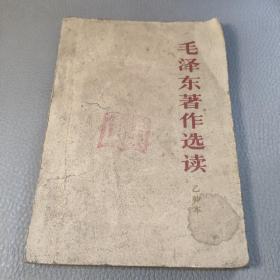 毛泽东著作选读
乙种本